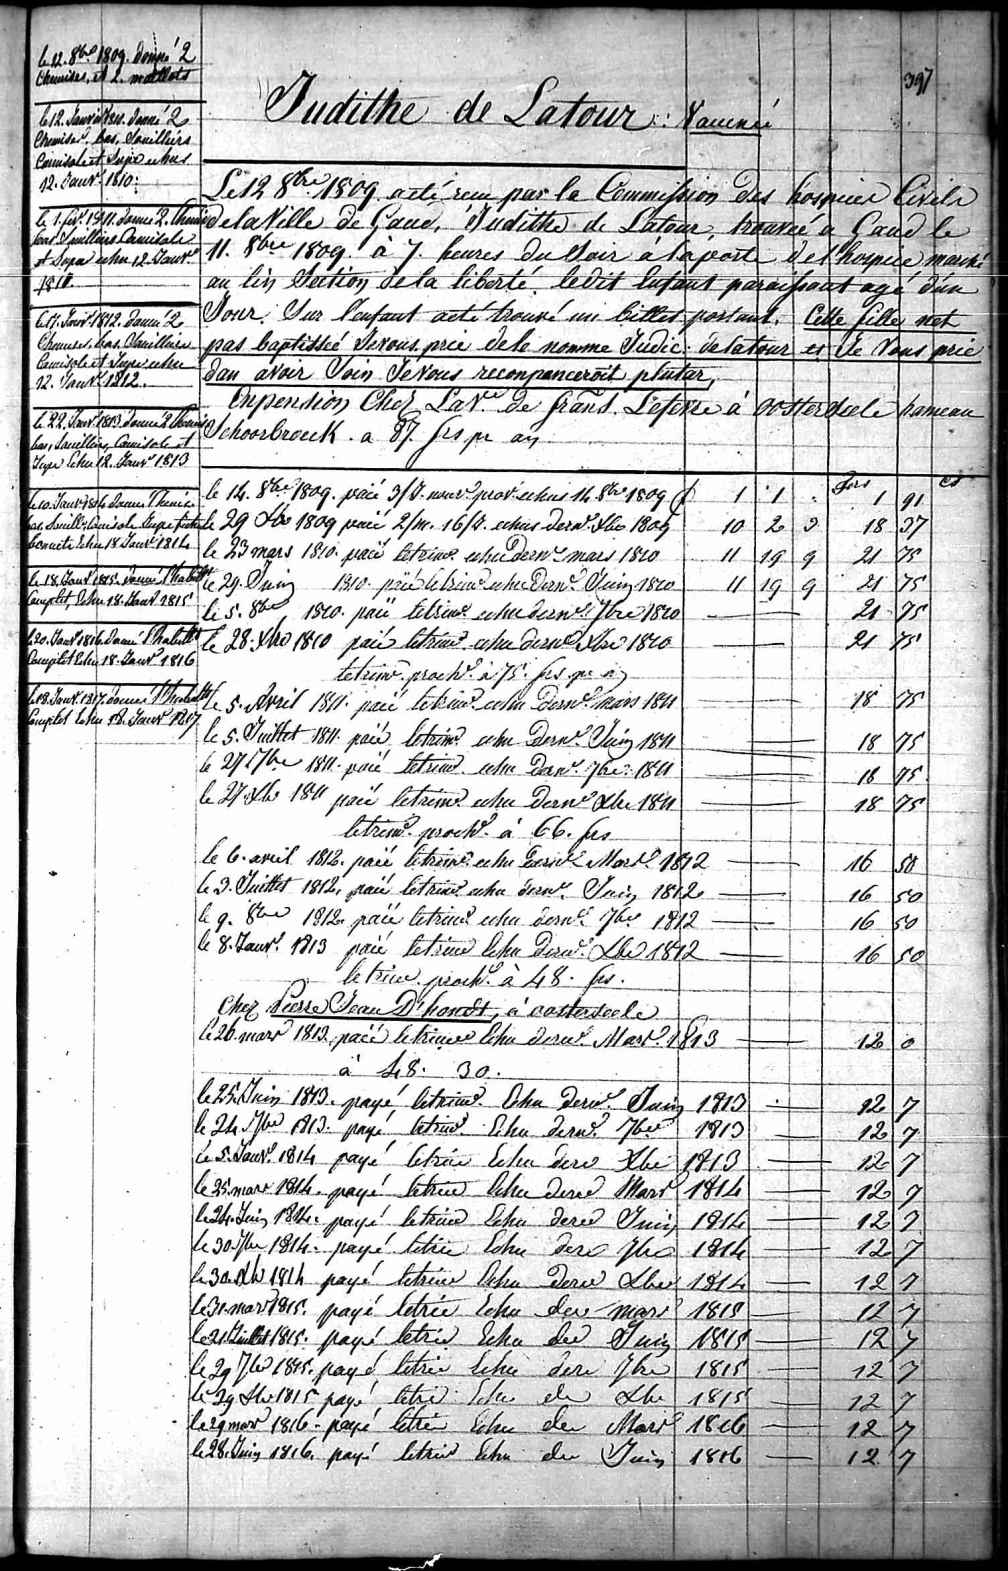 397
Judithe de Latour : Vaccinée
le 12. 8bre 1809. donné 2
Chemises, et 2. maillots
le 12. Janvier 1811. donné 2
Chemises, bas, Souilliers
Camisole et Jupe echus
12. Janvr 1810:
le 1. fevr. 1811. donné 2. Chemises
bas Souilliers Camisole
et Jupe echu 12. Janvr
1811
le 17. Janvr 1812. donné 2
Chemises, bas, Souilliers
Camisole et Jupe echu
12. Janvr 1812.
le 22. Janvr 1813. donné 2 Chemis
bas, Souilliers, Camisole et
Jupe Echu 12. Janvr 1813
le 10. Janvr 1814 donné 1 Chemise
bas Souill. Camisole Jupe
Echu 18 Janvr 1814
le 18. Janvr 1815. donné 1 habillt
Complet, Echu 18. Janvr 1815
le 20. Janvr 1816 donné 1 habillt
Complet Echu 18. Janvr 1816
le 18. Janvr 1817. donné 1 habillt
Complet Echu 18. Janvr 1817.
Le 12 8bre 1809 acté reçu par la Commission des hospices Civils
de la Ville de Gand, Judithe de Latour, trouvée a Gand le
11. 8bre 1809. à 7. heures du Soir à la porte de l'hospice marché
au lin Section de la liberté. ledit Enfant paraissant agé d'un
Jour. Sur l'enfant acté trouvé un billet portant. Cette fille net
pas baptissé Je vous prie de le nomme Judic. de latour et Je vous prie
dan avoir Soin Je vous reconpanceroit plutar,
En pension Chez La Ve de frans. Lefevre à Oosterseele hameau
Schoorbrouck. a 87. frs pr an
frs cs
le 14. 8bre 1809. paié 3/J. nour. prov. echus 14. 8bre 1809 1 1 . 1 91
le 29 Xbre 1809 paié 2/m. 16/J. echus dernr Xbre 1809 10 2 3 18 37
le 23 mars 1810. paié letrimr echu dernr mars 1810 11 19 9 21 75
le 29. Juin 1810. paié letrimr echu Dernr Juin 1810 11 19 9 21 75
le 5. 8bre 1810. paié letrimr echu dernr 7bre 1810 21 75
le 28. Xbre 1810 paié letrimr echu dernr Xbre 1810 21 75
letrimr prochr à 75. frs pr an
le 5. Avril 1811. paié letrimr echu Dernr mars 1811 18 75
le 5. Juillet 1811. paié letrimr echu Dernr Juin 1811 18 75
le 27 7bre 1811. paié letrimr echu Dernr 7bre 1811 18 75.
le 27 Xbre 1811 paié letrimr echu Dernr Xbre 1811 18 75
letrimr prochr à 66. frs
le 6. avril 1812. paié letrimr echu Dernr Mars 1812 16 50
le 3. Juillet 1812. paié letrimr echu dernr Juin 1812 16 50
le 9. 8bre 1812. paié letrimr echu dernr 7bre 1812 16 50
le 8. Janvr 1813 paié letrimr Echu Dernr Xbre 1812 16 50
letrimr prochr à 48. frs.
Chez Pierre Jean D'hondt, à oosterseele
le 26 mars 1813. paié letrimr Echu dernr Mars 1813 12 0
à 48. 30.
le 25 Juin 1813. payé letrimr Echu dernr Juin 1813 12 7
le 24 7bre 1813. payé letrimr Echu dernr 7bre 1813 12 7
le 5. Janvr 1814 payé letrim Echu dern Xbre 1813 12 7
le 25. mars 1814. payé letrim Echu dern Mars 1814 12 7
le 24. Juin 1814. payé letrim Echu dern Juin 1814 12 7
le 30 7bre 1814. payé letrim Echu dern 7bre 1814 12 7
le 30. Xbre 1814 payé letrim Echu dern Xbre 1814 12 7
le 31. mars 1815. payé letrim Echu der mars 1815 12 7
le 21. Juillet 1815. payé letrim Echu der Juin 1815 12 7
le 29 7bre 1815. payé letrim Echu dern 7bre 1815 12 7
le 29 Xbre 1815 payé letrim Echu der Xbre 1815 12 7
le 29 mars 1816. payé letrim Echu der Mars 1816 12 7
le 28. Juin 1816. payé letrim Echu der Juin 1816 12 7